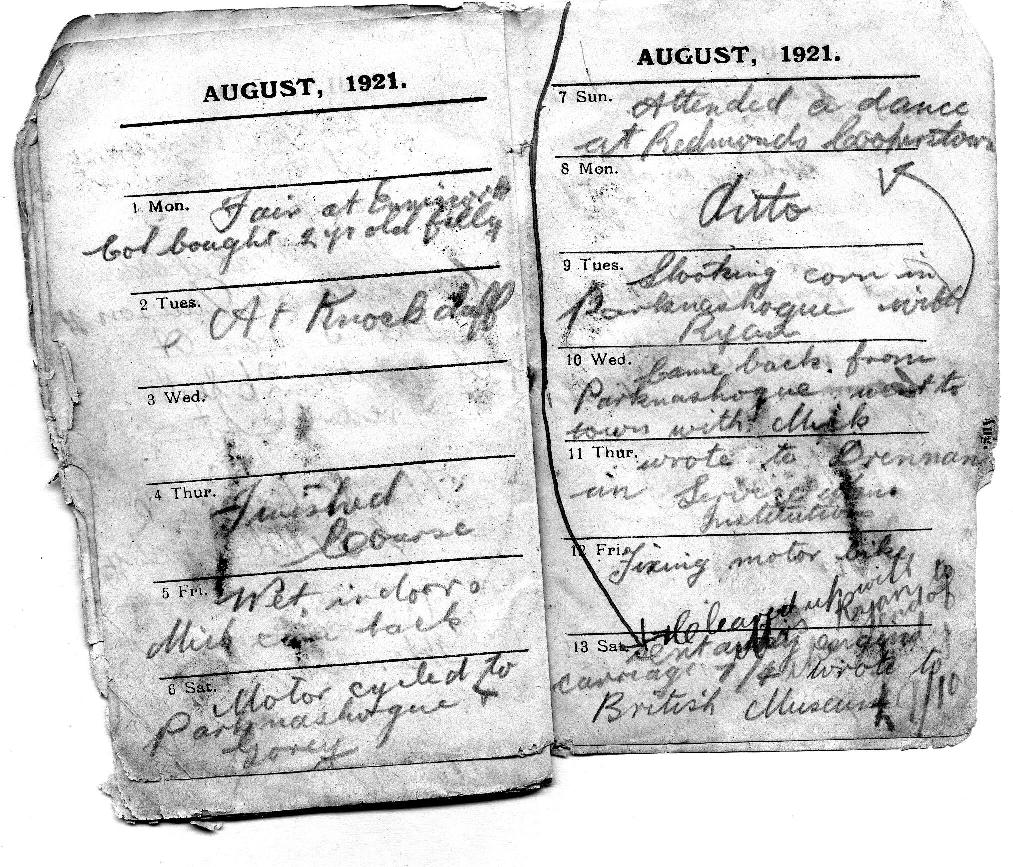 AUGUST, 1921.
1 Mon. Fair at
Col bought 2 yr old filly
2 Tues. At Knockduff
3 Wed.
4 Thur. Finished
Course
5 Fri. Wet, indoors
Mick came back
6 Sat. Motor cycled to
Parknashogue &
Gorey
AUGUST, 1921.
7 Sun. Attended a dance
at Redmonds Cooperstown
8 Mon. Ditto
9 Tues. Stooking corn in
Parknashogue with
Ryan
10 Wed. Came back from
Parknashogue went to
town with Mick
11 Thur. wrote to Brennan
in Service
Institution
12 Fri. Fixing motor bike
cleaned up with
13 Sat. sent engine
carriage 7/4 wrote to
British Museum